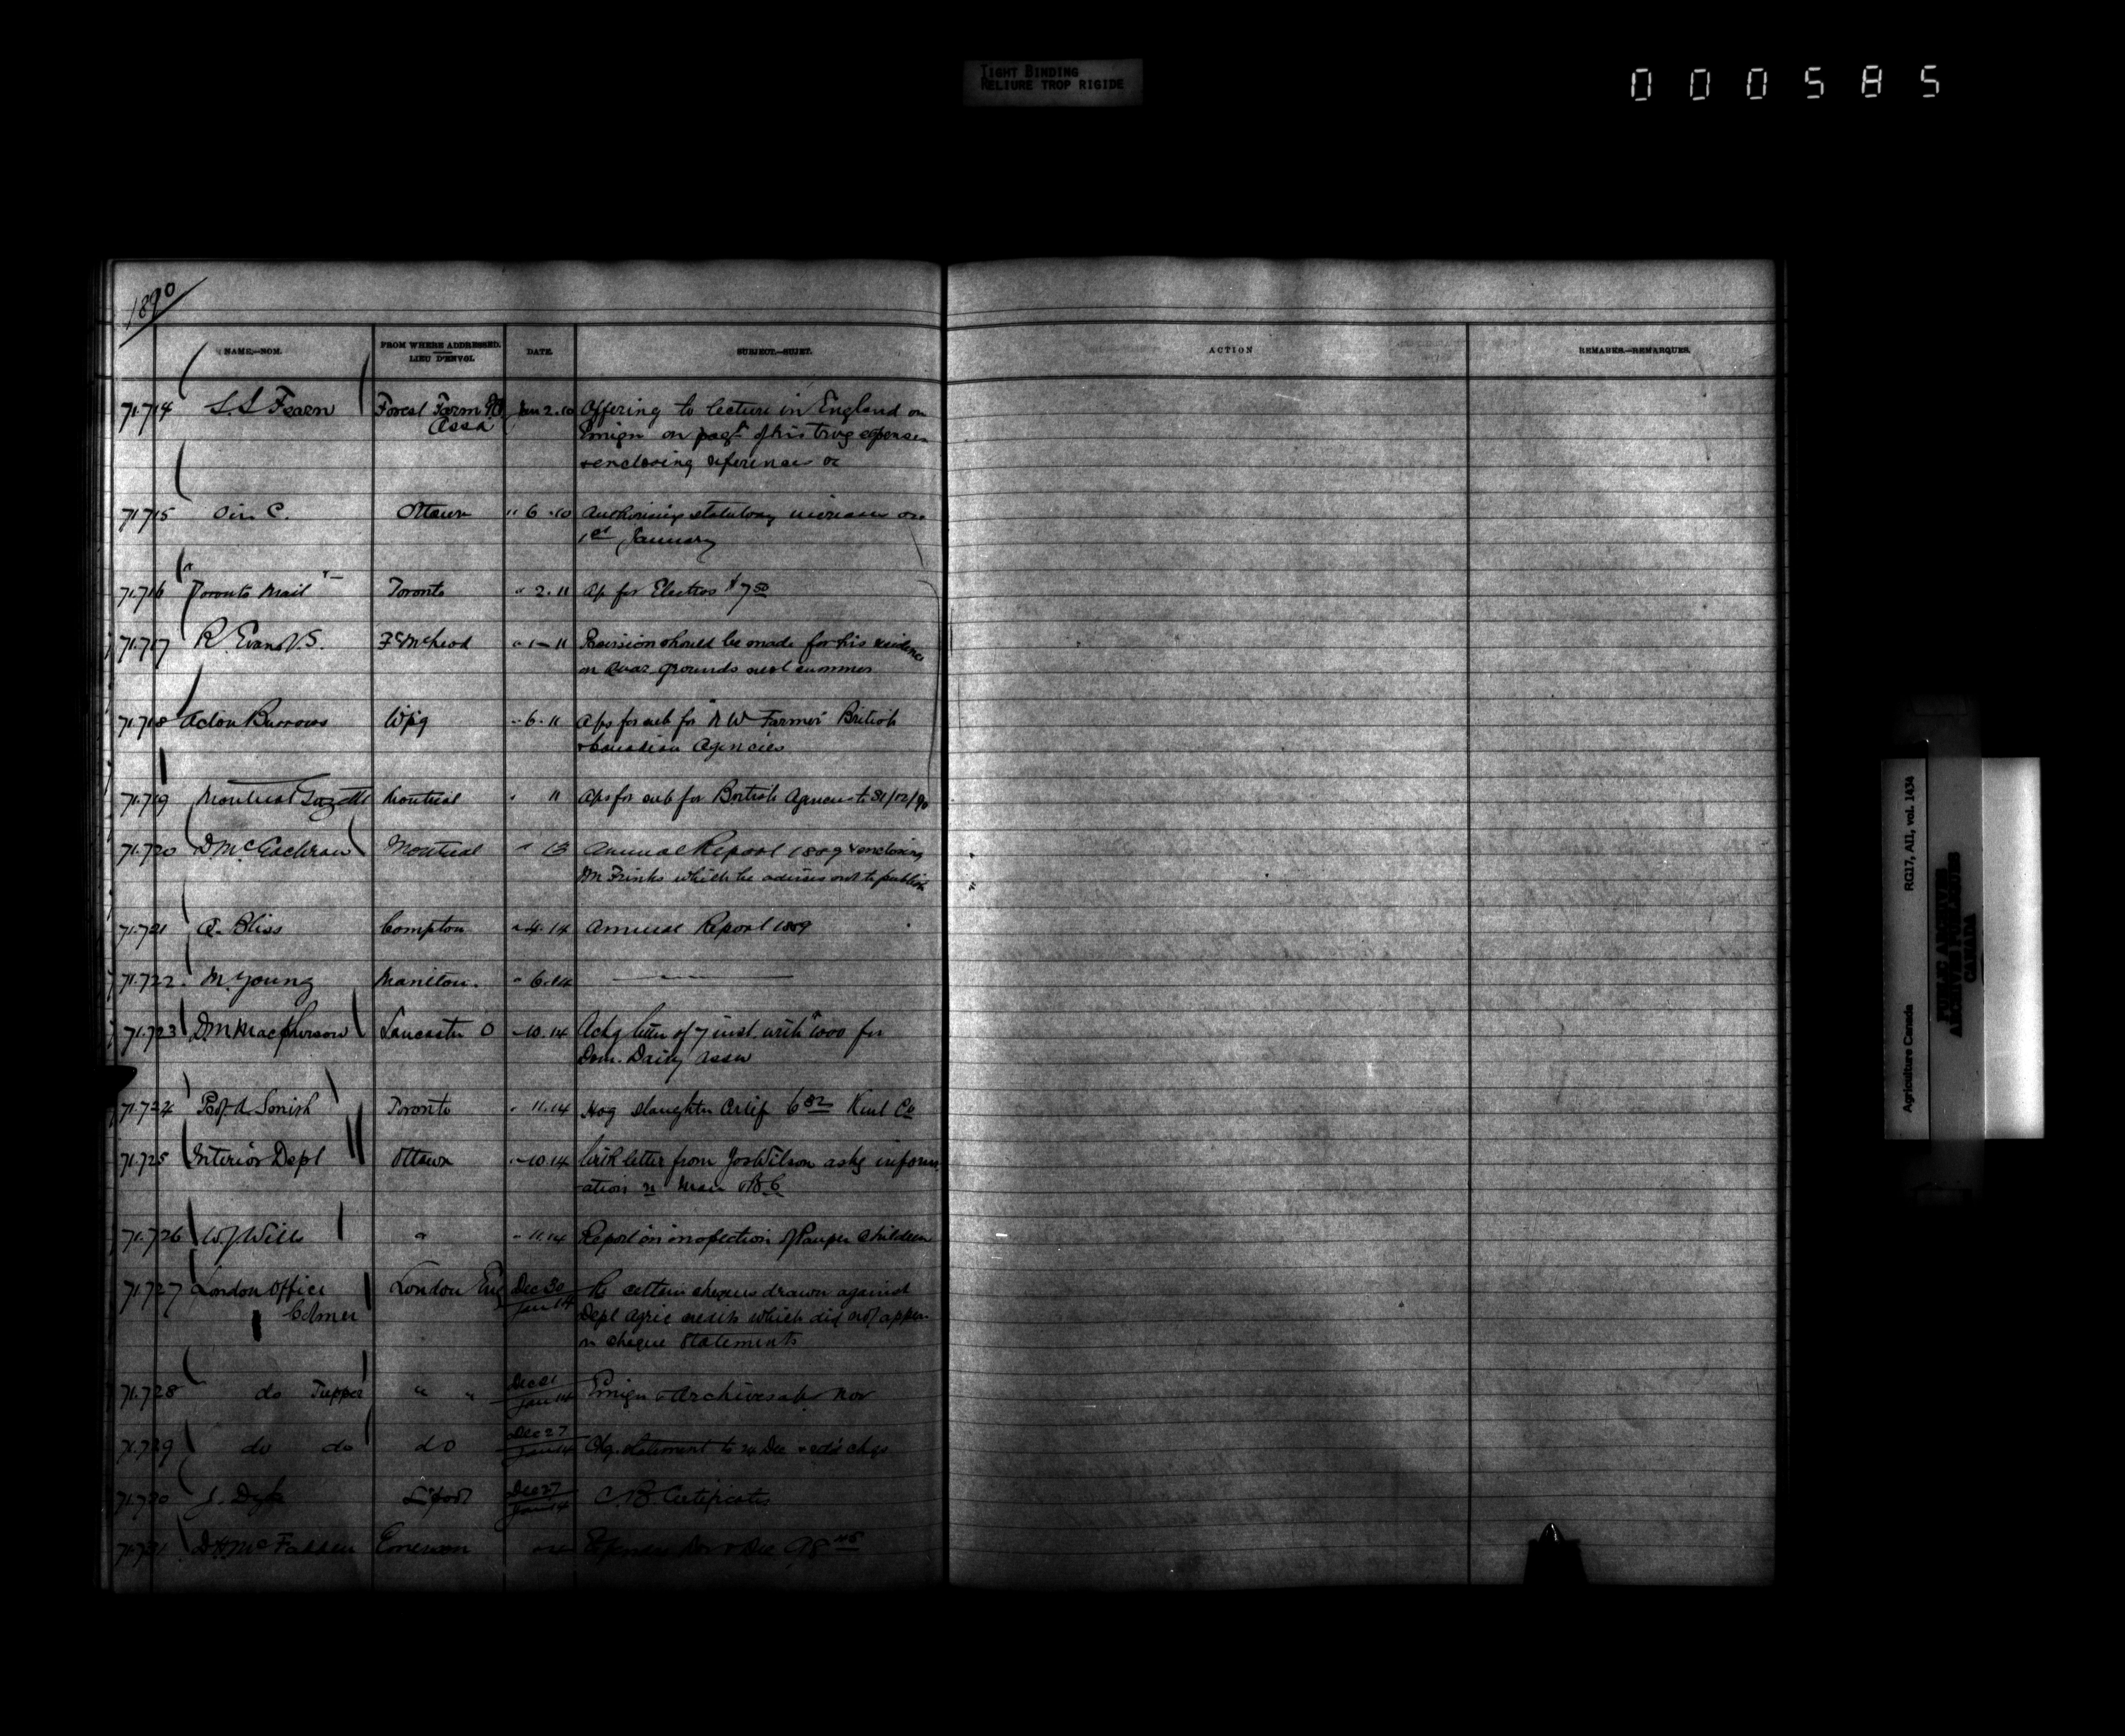 TIGHT BINDING
RELIURE TROP RIGIDE
000585
1890
NAME.—NOM.
FROM WHERE ADDRESSED.
LIEU D'ENVOI.
DATE.
SUBJECT.—SUJET.
ACTION
REMARKS.—REMARQUES.
71.714 S. S Fearn Forest Farm PO Jan 2.10 Offering to lecture in England on
Assa Emign on of his trvg expenses
+ enclosing references &c
71715 Oin C. Ottawa " 6 .10 Authorising statutory increases on
1st January
71.716 "Toronto Mail" Toronto " 2.11 Ap for Electros $7 50
71.717 R. Evans V.S. Ft McLeod " 1 - 11 Provision should be made for his residence
on Quar grounds next summer
71.718 Acton Burrows Wpg " 6.11 Aps for sub for "N W Farmer" British
+ Canadian Agencies
71.719 Montreal Gazette Montreal " 11 Aps for sub for British Agencies to 31/12/90
71.720 D McEachran Montreal " 13 Annual Report 1889 + enclosing
Dr Frinks which he advises not to publish
71.721 A. Bliss Compton " 4.14 Annual Report 1889
71.722. M. Young Manitou. " 6.14
71.723 D. M Macpherson Lancaster O " 10.14 Ackg letter of 7 inst. with $1000 for
Dom. Dairy Assn
71.724 Prof. A Smith Toronto " 11.14 Hog slaughter Certif 6 82 Kent Co
71.725 Interior Dept Ottawa " 10 14 With letter from Jos Wilson askg inform
ation re Man & B C
71.726 W. J Wills " " 11.14 Report on inspection of Pauper Children
71.727 London Office London Eng Dec 30 Re certain cheques drawn against
Colmer Jan 14 Dept Agric credits which did not appear
in cheque Statements
71.728 do Tupper " " Dec 21
Jan 14 Emign & Archives a/c Nov
71.729 do do do Dec 27
Jan 14 Chq. statement to 24 Dec
71.730 J. Dyke L'pool Dec 27
Jan 14 C. B. Certificates
71.731 D H McFadden Emerson Expenses Nov + Dec 98
RG17, AI1, vol. 1434
Agriculture Canada
PUBLIC ARCHIVES
ARCHIVES PUBLIQUES
CANADA